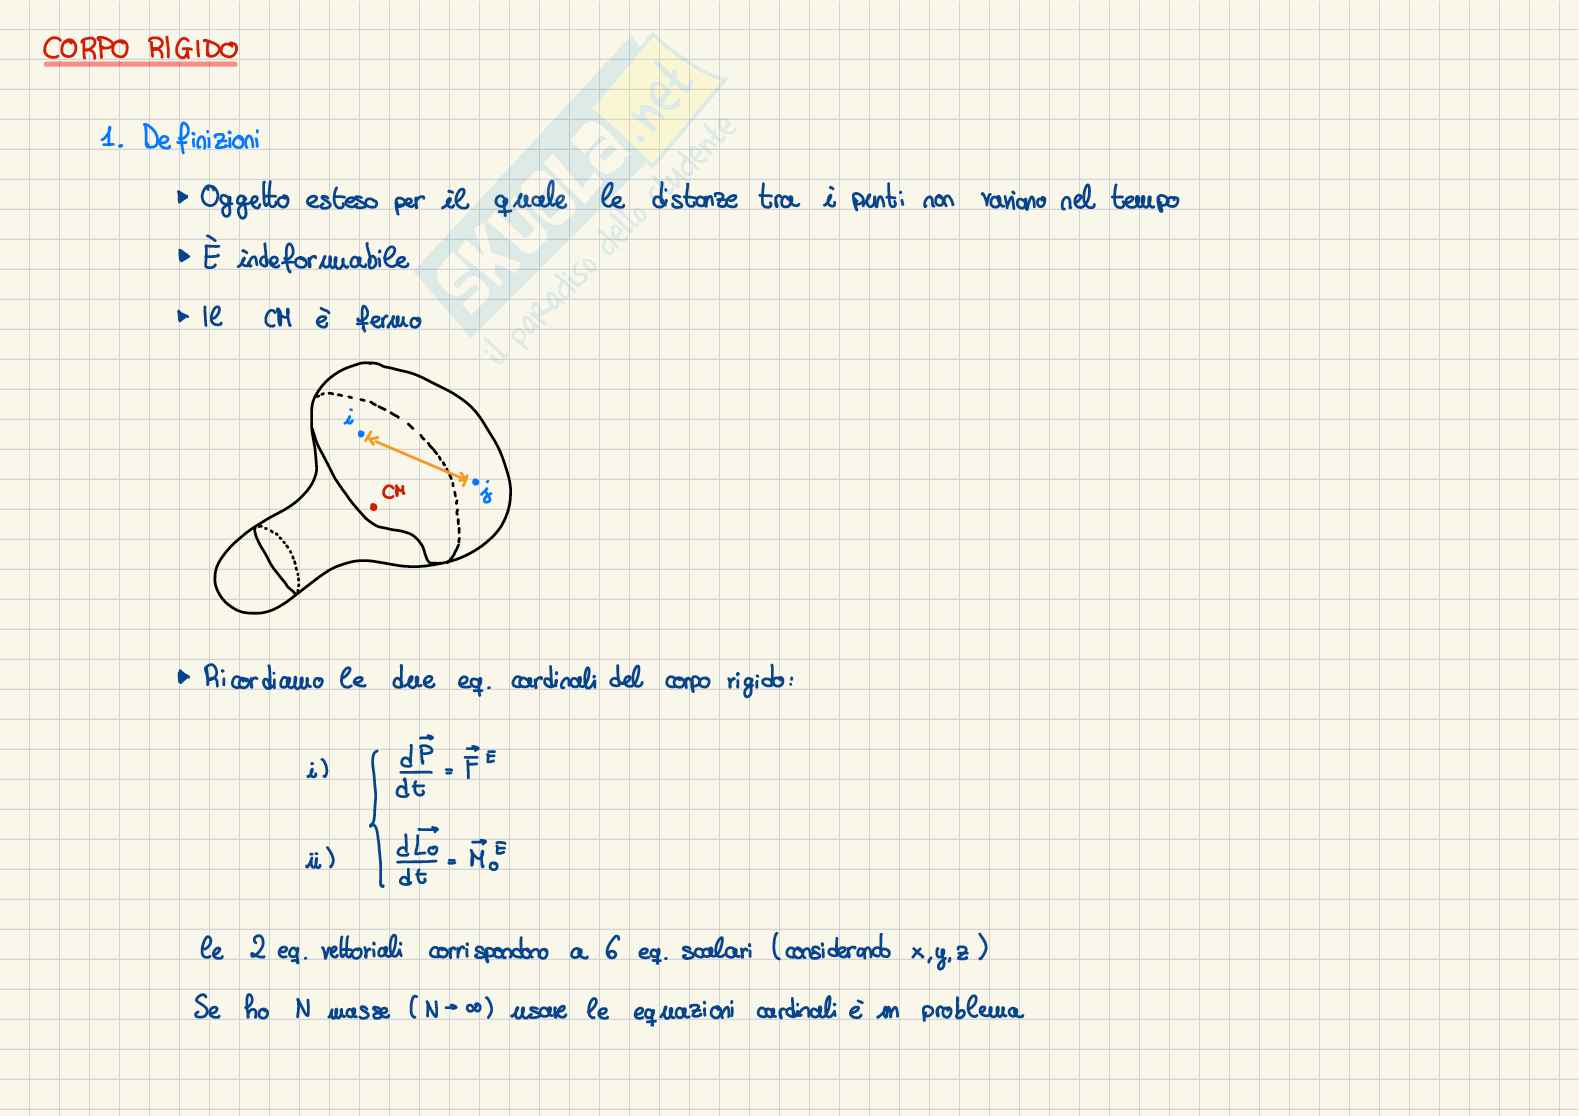 CORPO RIGIDO
SKUOLA.net
il paradiso dello studente
1. Definizioni
▸ Oggetto esteso per il quale le distanze tra i punti non variano nel tempo
▸ È indeformabile
▸ Il CM è fermo
i
CM
j
▸ Ricordiamo le due eq. cardinali del corpo rigido:
i) { dP⃗/dt = F⃗ᴱ
ii) dL⃗₀/dt = M⃗₀ᴱ
le 2 eq. vettoriali corrispondono a 6 eq. scalari (considerando x,y,z)
Se ho N masse (N→∞) usare le equazioni cardinali è un problema